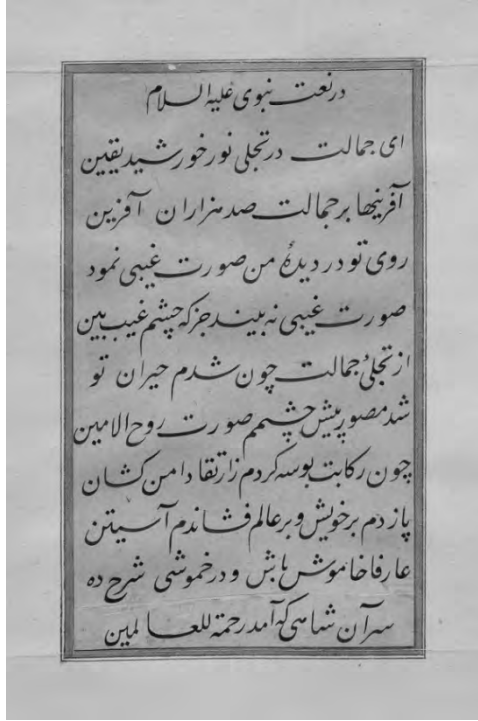 در نعت نبوی علیه السلام
ای جمالت در تجلی نور خورشید یقین
آفرینها بر جمالت صد هزاران آفرین
روی تو در دیدهٔ من صورت غیبی نمود
صورت غیبی نه بیند جز که چشم غیب بین
از تجلیٔ جمالت چون شدم حیران تو
شد مصور پیش چشمم صورت روح الامین
چون رکابت بوسه کردم زارتقا دامن کشان
پا زدم بر خویش و بر عالم فشاندم آستین
عارفا خاموش باش و در خموشی شرح ده
سر آن شاهی که آمد رحمة للعالمین